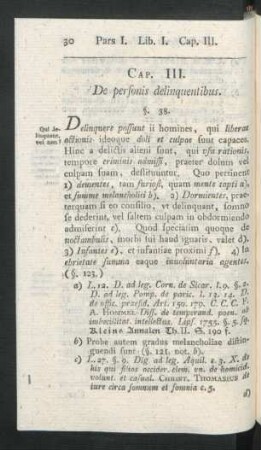 30 Pars I. Lib. I. Cap. III.
CAP. III.
De personis delinquentibus.
§. 38.
Qui de-
linquere,
vel non?
Delinquere possunt ii homines, qui liberae
actionis ideoque doli et culpae sunt capaces.
Hinc a delictis alieni sunt, qui usu rationis,
tempore criminis admissi, praeter dolum vel
culpam suam, destituuntur. Quo pertinent
1) dementes, tam furiosi, quam mente capti a),
et summe melancholici b), 2) Dormientes, prae-
terquam si eo consilio, et delinquant, somno
se dederint, vel saltem culpam in obdormiendo
admiserint c). Quod speciatim quoque de
noctambulis, morbi sui haud ignaris, valet d).
3) Infantes e), et infantiae proximi f), 4) In
ebrietate summa eaque involuntaria agentes.
(§. 123.)
a) L. 12. D. ad leg. Corn. de Sicar. l. 9. §. 2.
D. ad leg. Pomp. de paric. l. 13. 14. D.
de offic. praesid. Art. 150. 179. C. C. C. F.
A. HOMMEL Diss. de temperand. poen. ob
imbecillitat. intellectus. Lips. 1755. §. 5. sq.
Kleins Annalen Th. II. S. 190 f.
b) Probe autem gradus melancholiae distin-
guendi sunt (§. 121. not. b).
c) L. 27. §. 9. Dig. ad leg. Aquil. c. 3. X. de
his qui filios occider. clem. un. de homicid.
volunt. et casual. CHRIST. THOMASIUS de
iure circa somnum et somnia c. 3.
d)